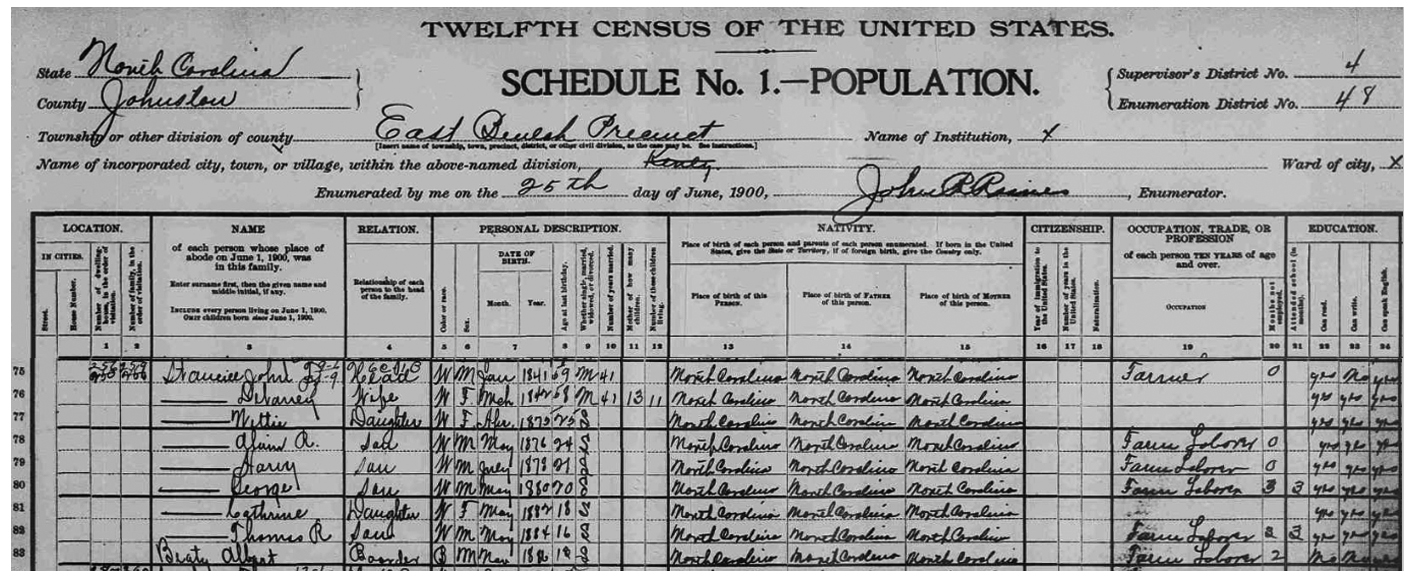 TWELFTH CENSUS OF THE UNITED STATES.
State North Carolina
County Johnston
SCHEDULE No. 1.—POPULATION.
Supervisor's District No. 4
Enumeration District No. 48
Township or other division of county East Precinct
[Insert name of township, town, precinct, district, or other civil division, as the case may be. See instructions.]
Name of Institution, X
Name of incorporated city, town, or village, within the above-named division,
Ward of city, X
Enumerated by me on the 25th day of June, 1900, John R , Enumerator.
LOCATION. NAME RELATION. PERSONAL DESCRIPTION. NATIVITY. CITIZENSHIP. OCCUPATION, TRADE, OR PROFESSION EDUCATION.
IN CITIES.
Street.
House Number.
Number of dwelling-house, in the order of visitation.
Number of family, in the order of visitation.
of each person whose place of abode on June 1, 1900, was in this family.
Enter surname first, then the given name and middle initial, if any.
INCLUDE every person living on June 1, 1900.
OMIT children born since June 1, 1900.
Relationship of each person to the head of the family.
Color or race.
Sex.
DATE OF BIRTH.
Month. Year.
Age at last birthday.
Whether single, married, widowed, or divorced.
Number of years married.
Mother of how many children.
Number of these children living.
Place of birth of each person and parents of each person enumerated. If born in the United States, give the State or Territory; if of foreign birth, give the Country only.
Place of birth of this PERSON.
Place of birth of FATHER of this person.
Place of birth of MOTHER of this person.
Year of immigration to the United States.
Number of years in the United States.
Naturalization.
of each person TEN YEARS of age and over.
OCCUPATION
Months not employed.
Attended school (in months).
Can read.
Can write.
Can speak English.
1 2 3 4 5 6 7 8 9 10 11 12 13 14 15 16 17 18 19 20 21 22 23 24
75 John Head W M Jan 1841 59 M 41 North Carolina North Carolina North Carolina Farmer 0 yes No yes
76 Wife W F Mch 1842 58 M 41 13 11 North Carolina North Carolina North Carolina yes yes yes
77 Daughter W F Apr. 1875 25 S North Carolina North Carolina North Carolina yes yes yes
78 R. Son W M May 1876 24 S North Carolina North Carolina North Carolina Farm Laborer 0 yes yes yes
79 Son W M 1878 21 S North Carolina North Carolina North Carolina Farm Laborer 0 yes yes yes
80 George Son W M May 1880 20 S North Carolina North Carolina North Carolina Farm Laborer 3 3 yes yes yes
81 Cathrine Daughter W F May 1882 18 S North Carolina North Carolina North Carolina yes yes yes
82 Thomas R Son W M May 1884 16 S North Carolina North Carolina North Carolina Farm Laborer 2 3 yes yes yes
83 Albert Boarder B M 18 S North Carolina North Carolina North Carolina Farm Laborer 2 No No yes